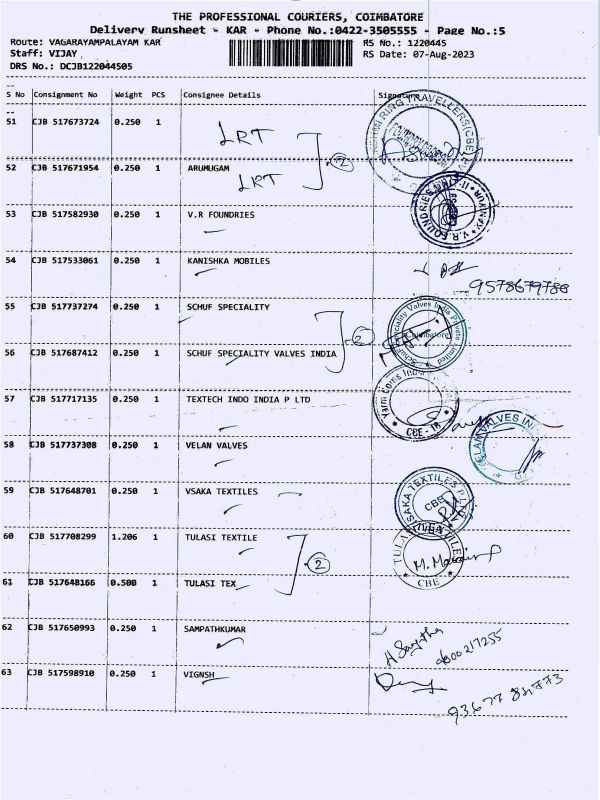 THE PROFESSIONAL COURIERS, COIMBATORE
Delivery Runsheet - KAR - Phone No.:0422-3505555 - Page No.:5
Route: VAGARAYAMPALAYAM KAR RS No.: 1220445
Staff: VIJAY RS Date: 07-Aug-2023
DRS No.: DCJB122044505
S No Consignment No Weight PCS Consignee Details Signature
51 CJB 517673724 0.250 1 LRT
52 CJB 517671954 0.250 1 ARUMUGAM
LRT
53 CJB 517582930 0.250 1 V.R FOUNDRIES
V.R FOUNDRIES
54 CJB 517533061 0.250 1 KANISHKA MOBILES
9578679788
55 CJB 517737274 0.250 1 SCHUF SPECIALITY
Schuf Speciality Valves India Private Limited
Coimbatore
2
56 CJB 517687412 0.250 1 SCHUF SPECIALITY VALVES INDIA
57 CJB 517717135 0.250 1 TEXTECH INDO INDIA P LTD
CBE - 18
58 CJB 517737308 0.250 1 VELAN VALVES
59 CJB 517648701 0.250 1 VSAKA TEXTILES
CBE
60 CJB 517708299 1.206 1 TULASI TEXTILE
2
61 CJB 517648166 0.500 1 TULASI TEX
CBE
62 CJB 517650993 0.250 1 SAMPATHKUMAR
63 CJB 517598910 0.250 1 VIGNSH